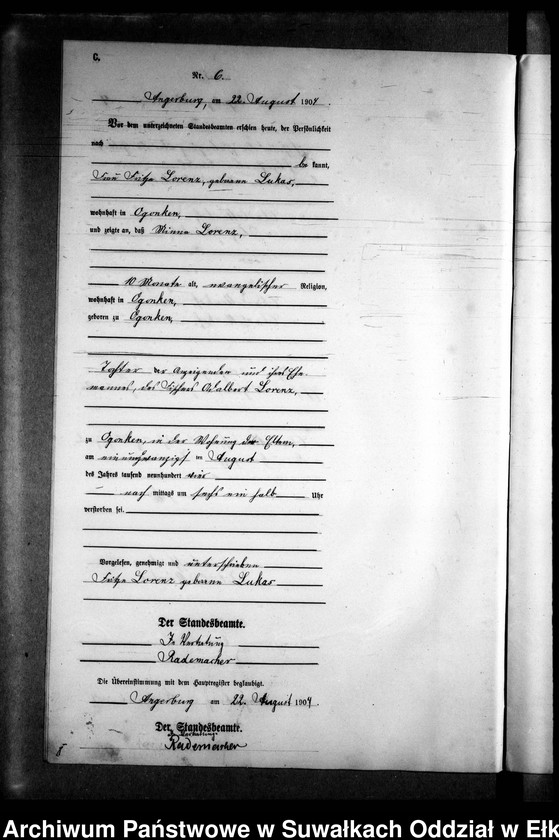 C.
Nr. 6.
Angerburg, am 22. August 1904.
Vor dem unterzeichneten Standesbeamten erschien heute, der Persönlichkeit
nach
be kannt,
Frau Lorenz, geborene Lukas,
wohnhaft in Ogonken,
und zeigte an, daß Minna Lorenz,
10 Monate alt, evangelischer Religion,
wohnhaft in Ogonken,
geboren zu Ogonken,
Tochter der Anzeigenden und ihres Ehe-
mannes, des Fischers Adalbert Lorenz,
zu Ogonken, in der Wohnung der Eltern,
am einundzwanzigst en August
des Jahres tausend neunhundert vier
nach mittags um sechs ein halb Uhr
verstorben sei.
Vorgelesen, genehmigt und unterschrieben
Lorenz geborene Lukas
Der Standesbeamte.
In Vertretung
Rademacher
Die Übereinstimmung mit dem Hauptregister beglaubigt.
Angerburg am 22. August 1904.
Der Standesbeamte.
In Vertretung
Rademacher
Archiwum Państwowe w Suwałkach Oddział w Ełk